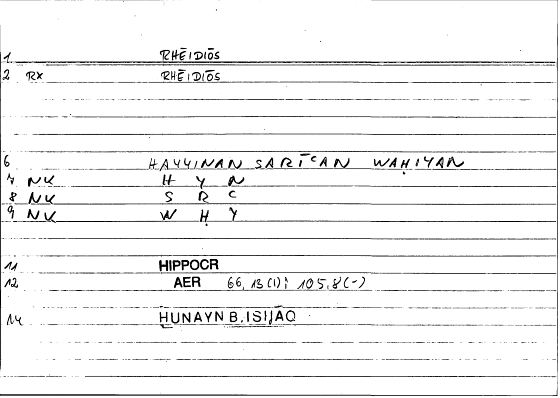 1 RHĒIDIŌS
2 RX RHĒIDIŌS
6 HAYYINAN SARĪʿAN WAḤIYAN
7 NK H Y N
8 NK S R ʿ
9 NK W Ḥ Y
11 HIPPOCR
12 AER 66,13(1); 105,8(-)
14 ḤUNAYN B. ISḤĀQ